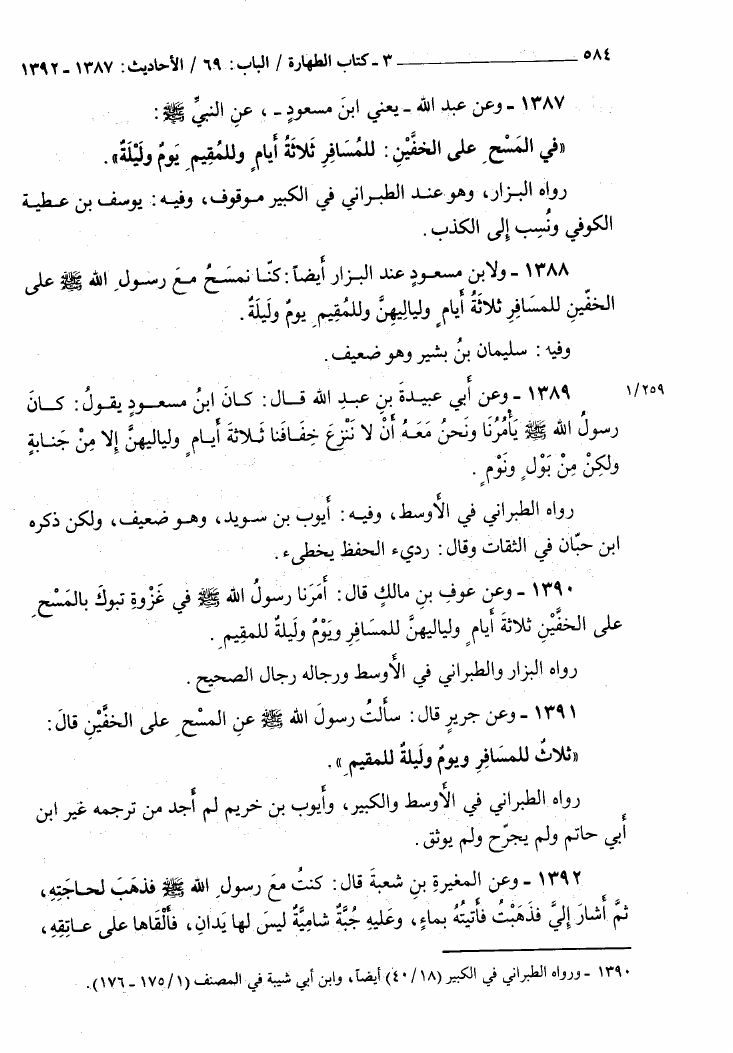 ٥٨٤ ــــــــــــ ٣ ـ كتاب الطهارة / الباب: ٦٩ / الأحاديث: ١٣٨٧ ـ ١٣٩٢
١٣٨٧ ـ وعن عبد الله ـ يعني ابنَ مسعودٍ ـ ، عن النبيِّ ﷺ:
«في المَسْحِ على الخفَّيْنِ: للمُسَافِرِ ثَلاثَةُ أيامٍ وللمُقيمِ يَومٌ ولَيْلَةٌ».
رواه البزار، وهو عند الطبراني في الكبير موقوف، وفيه: يوسف بن عطية
الكوفي ونُسِب إلى الكذب.
١٣٨٨ ـ ولابن مسعودٍ عند البزار أيضاً: كنَّا نمسَحُ معَ رسولِ الله ﷺ على
الخفّينِ للمسَافرِ ثلاثةُ أيامٍ ولياليهِنَّ وللمُقِيمِ يومٌ ولَيلَةٌ.
وفيه: سليمان بنُ بشير وهو ضعيف.
١/٢٥٩ ١٣٨٩ ـ وعن أبي عبيدةَ بنِ عبدِ الله قال: كانَ ابنُ مسعودٍ يقولُ: كانَ
رسولُ الله ﷺ يَأْمُرُنَا ونَحنُ مَعَهُ أنْ لا نَنْزِعَ خِفَافَنا ثَلاثةَ أيامٍ ولياليهنَّ إلا مِنْ جَنابةٍ
ولكِنْ مِنْ بَوْلٍ ونَوْمٍ.
رواه الطبراني في الأوسط، وفيه: أيوب بن سويد، وهو ضعيف، ولكن ذكره
ابن حبّان في الثقات وقال: رديء الحفظ يخطىء.
١٣٩٠ ـ وعن عوفِ بنِ مالكٍ قال: أمَرَنا رسولُ الله ﷺ في غَزْوةِ تبوكَ بالمَسْحِ
على الخفَّيْنِ ثلاثةَ أيامٍ ولياليهنَّ للمسَافرِ ويَوْمٌ ولَيلةٌ للمقيمِ.
رواه البزار والطبراني في الأوسط ورجاله رجال الصحيح.
١٣٩١ ـ وعن جريرٍ قال: سألتُ رسولَ الله ﷺ عنِ المسْحِ على الخفَّيْنِ قالَ:
«ثلاثٌ للمسَافِرِ ويومٌ ولَيلةٌ للمقيمِ».
رواه الطبراني في الأوسط والكبير، وأيوب بن خريم لم أجد من ترجمه غير ابن
أبي حاتم ولم يجرّح ولم يوثق.
١٣٩٢ ـ وعن المغيرةِ بنِ شعبةَ قال: كنتُ معَ رسولِ الله ﷺ فذهَبَ لحاجَتِهِ،
ثمَّ أشارَ إليَّ فذهَبْتُ فأتيتُهُ بماءٍ، وعَليهِ جُبَّةٌ شاميَّةٌ ليسَ لها يَدانِ، فألْقَاها على عاتِقِهِ،
١٣٩٠ ـ ورواه الطبراني في الكبير (١٨/ ٤٠) أيضاً، وابن أبي شيبة في المصنف (١/ ١٧٥ ـ ١٧٦).